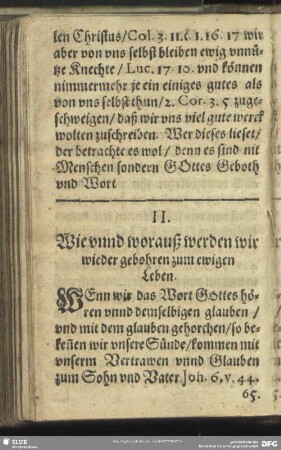 len Christus/Col. 3. 11. c. 1. 16. 17 wir
aber von vns selbst bleiben ewig vnnů-
tze Knechte / Luc. 17. 10. vnd kőnnen
nimmermehr je ein einiges gutes als
von vns selbst thun/2. Cor. 3. 5 zuge-
schweigen/ daß wir vns viel gute werck
wolten zuschreiben. Wer dieses lieset/
der betrachte es wol/ denn es sind nit
Menschen sondern GOttes Geboth
vnd Wort
II.
Wie vnnd worauß werden wir
wieder gebohren zum ewigen
Leben.
WEnn wir das Wort GOttes hő-
ren vnnd demselbigen glauben /
vnd mit dem glauben gehorchen/so be-
keñen wir vnsere Sünde/kommen mit
vnserm Vertrawen vnnd Glauben
zum Sohn vnd Vater Joh. 6. v. 44.
65.
SLUB
DFG